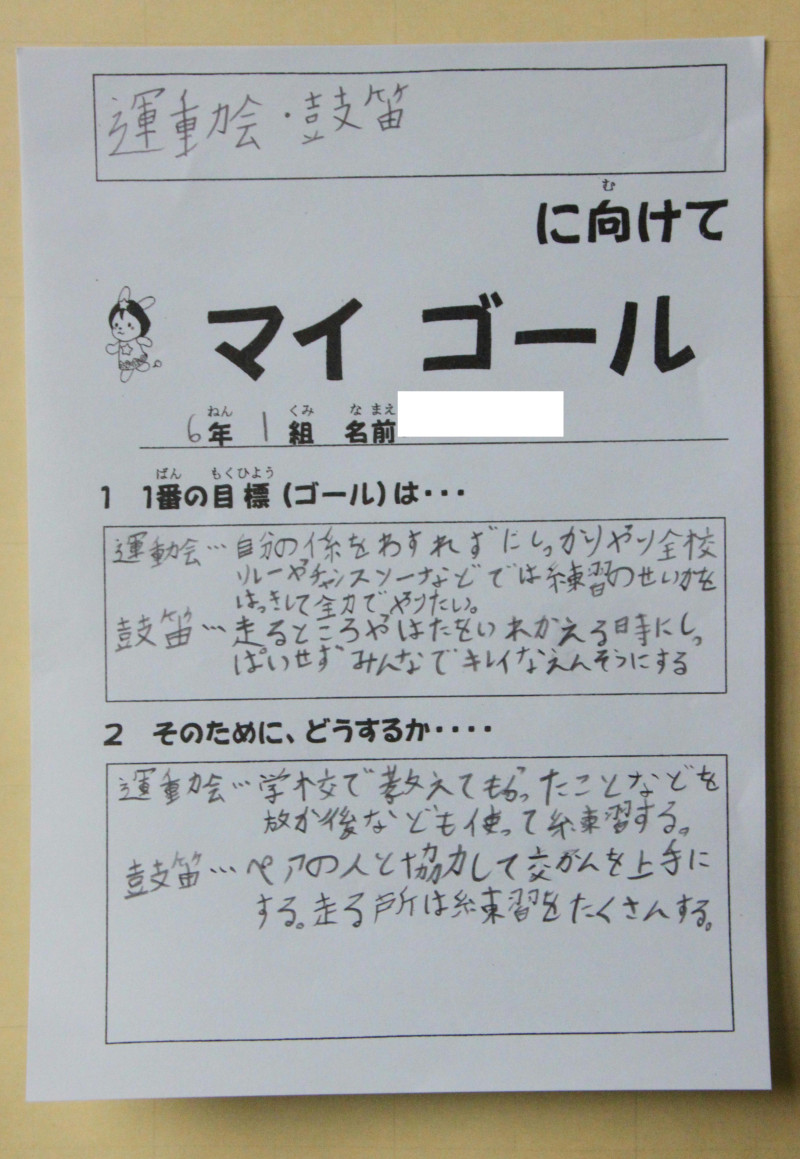 運動会・鼓笛
に向けて
む
マイ ゴール
ねん くみ な まえ
6年 1組 名前
ばん もくひよう
1 1番の目標(ゴール)は・・・
運動会…自分の係をわすれずにしっかりやり全校
リレーやチャンスソーなどでは練習のせいかを
はっきして全力でやりたい。
鼓笛…走るところやはたをいれかえる時にしっ
ぱいせずみんなでキレイなえんそうにする
2 そのために、どうするか・・・・
運動会…学校で教えてもらったことなどを
放か後なども使って練習する。
鼓笛…ペアの人と協力して交かんを上手に
する。走る所は練習をたくさんする。